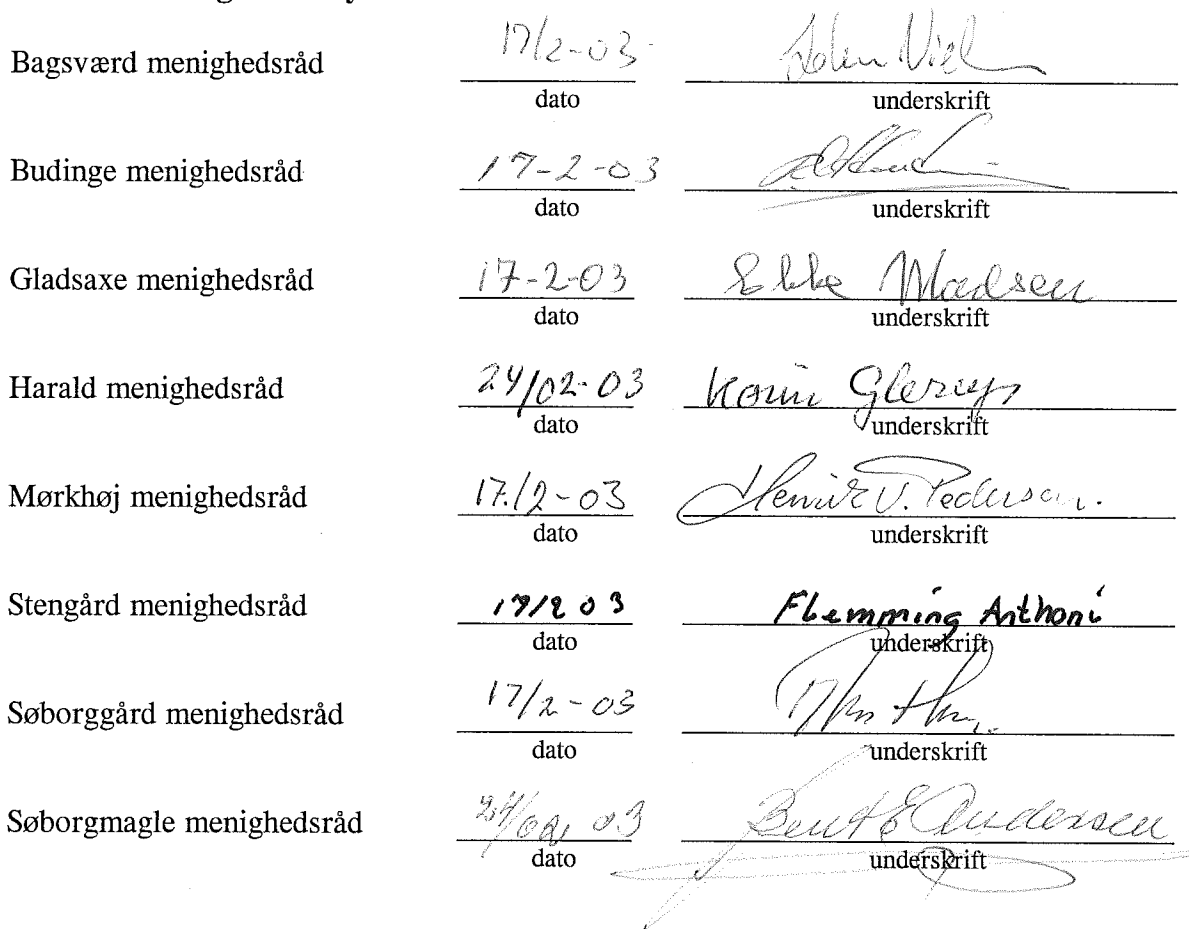 Bagsværd menighedsråd 17/2-03
dato underskrift
Budinge menighedsråd 17-2-03
dato underskrift
Gladsaxe menighedsråd 17-2-03 Ebbe Madsen
dato underskrift
Harald menighedsråd 24/02-03 Karin
dato underskrift
Mørkhøj menighedsråd 17./2-03 Henrik V. Pedersen.
dato underskrift
Stengård menighedsråd 17/2 03 Flemming Anthoni
dato underskrift
Søborggård menighedsråd 17/2-03
dato underskrift
Søborgmagle menighedsråd 24/02 03 Bent E Andersen
dato underskrift